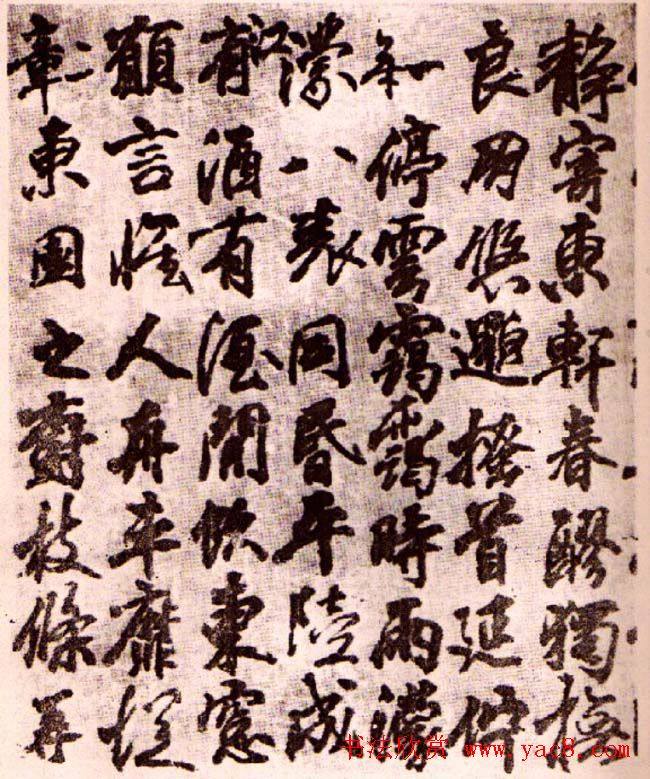 靜寄東軒春醪獨撫
良朋悠邈搔首延佇
停雲靄靄時雨濛
濛八表同昏平陸成
江有酒有酒閒飲東窓
願言懷人舟車靡從
章東園之樹枝條再
书法欣赏 www.yac8.com